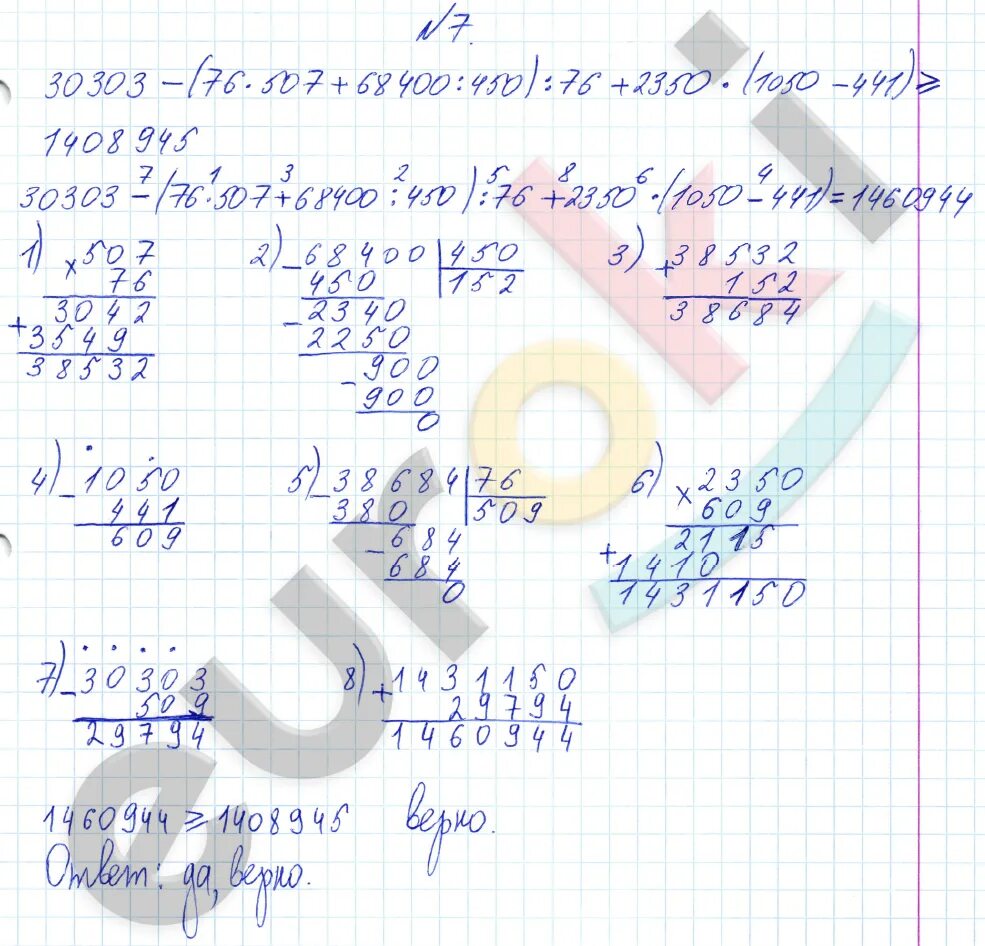 №7.
30303-(76·507+68400:450):76+2350·(1050-441)≥
1408945
7 1 3 2 5 8 6 4
30303-(76·507+68400:450):76+2350·(1050-441)=1460944
1) ×507
76
3042
+3549
38532
2) -68400 450
450 152
-2340
2250
-900
900
0
3) +38532
152
38684
4) -1050
441
609
5) -38684 76
380 509
-684
684
0
6) ×2350
609
2115
+1410
1431150
7) -30303
509
29794
8) +1431150
29794
1460944
1460944≥1408945 верно.
Ответ: да, верно.
euroki